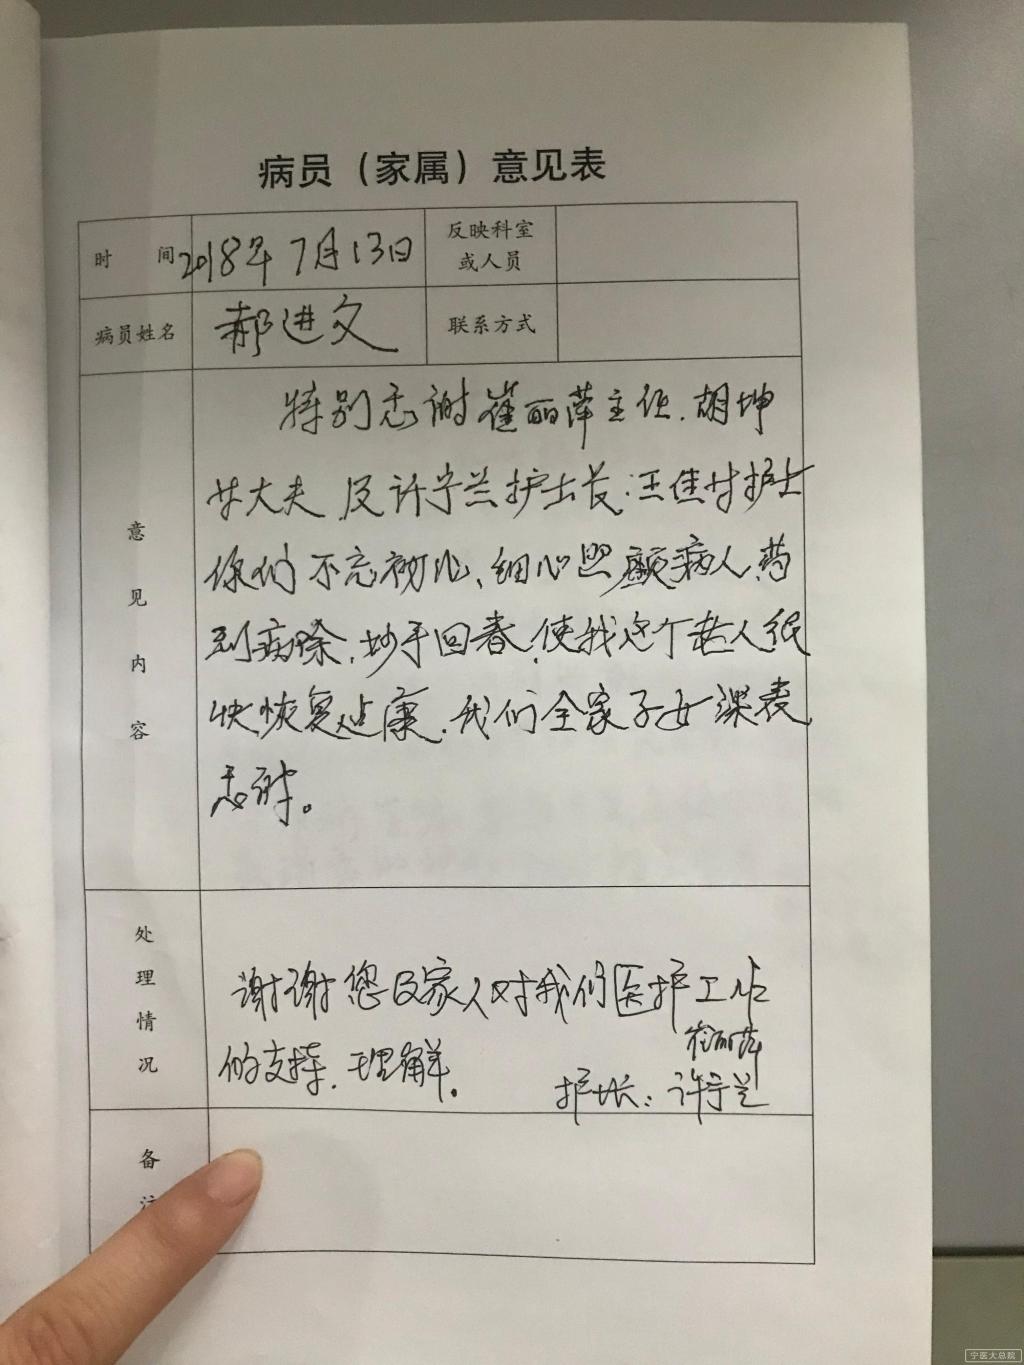 病员（家属）意见表
时 间 2018年7月13日 反映科室
或人员
病员姓名 郝进文 联系方式
意见内容
特别感谢崔丽萍主任.胡坤
大夫 及许宁兰护士长:王佳 护士
你们不忘初心、细心照顾病人,药
到病除,妙手回春,使我这个老人很
快恢复健康.我们全家子女深表
感谢。
处理情况
谢谢您及家人对我们医护工作
的支持.理解。
崔丽萍
护士长：许宁兰
备注
宁医大总院